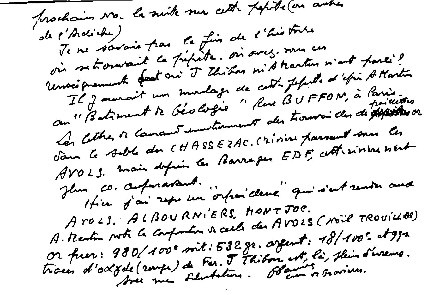 prochain No. la suite sur cette pépite (ou autres
de l'Ardèche)
Je ne savais pas la fin de l'histoire
où se trouvait la pépite. où avez-vous eu
renseignement ni J Thibon ni A Martin n'ont parlé?
Il y aurait un moulage de cette pépite d'après A Martin
au "Batiment de Géologie" Rue BUFFON, à Paris.
La lettre de mentionne des trouvailles de paillettes or
dans le sable du CHASSEZAC (rivière passant sous les
AVOLS. mais depuis les Barrages EDF, cette rivière n'est
plus co. auparavant.
Hier j'ai reçu un "orpailleur" qui s'est rendu aux
AVOLS. ALBOURNIERS, MONTJOC.
A. Martin note la composition de celle des AVOLS (Noël TROUILLAS)
or pur: 980/100e soit: 532 gr. argent: 18/100e et gr
traces d'oxyde (rouge) de Fer. J Thibon
avec mes Salutations.